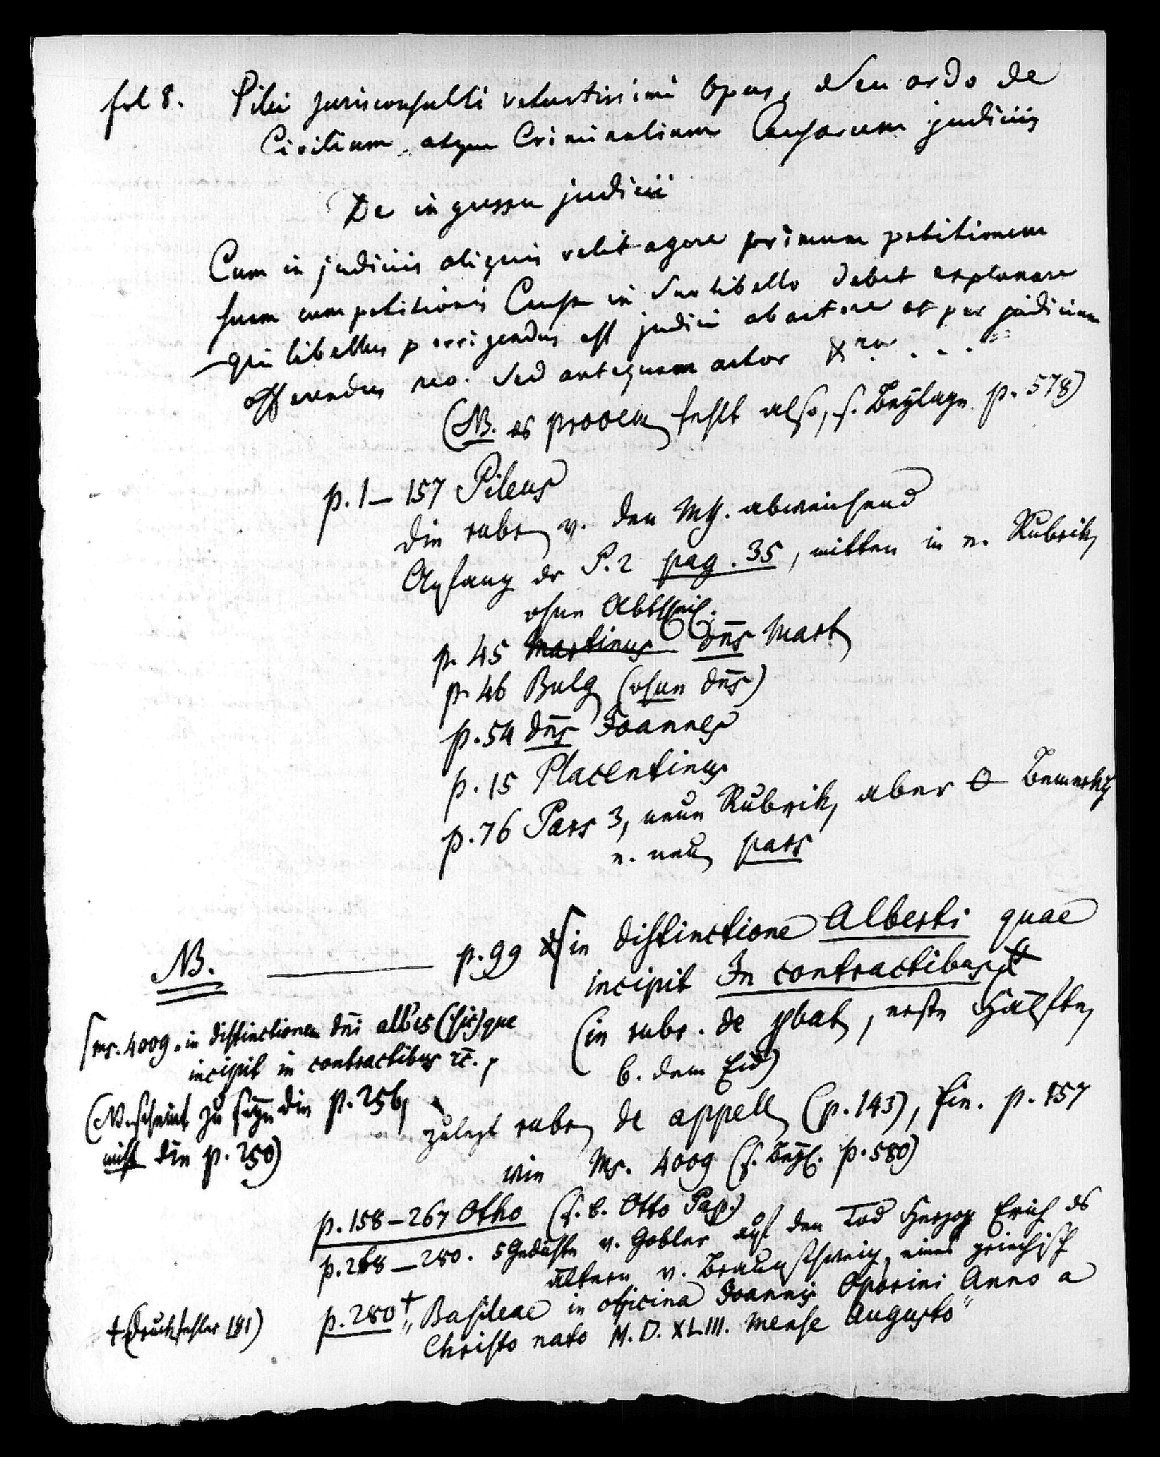 fol 8. Pilei jurisconsulti vetustissimi Opus, seu ordo de
Civilium atque Criminalium Causarum judiciis
De ingressu judicii
Cum in judiciis aliquis velit agere primum petitionem
suam cum petitionis Causa in suo libello debet explanare
qui libellus porrigendus est judici ab actore et per judicium
offerendus reo. Sed antequam actor
(NB. es prooem fehlt also, s. Beylage p. 578)
p. 1 — 157 Pileus
die rubr v. den MSS. abweichend
Anfang der P. 2 pag. 35, mitten in e. Rubrik,
ohne Abtheil.
p. 45 Martinus dn̄s Mart
p. 46 Bulg (ohne dn̄s)
p. 54 dn̄s Joannes
p. 15 Placentinus
p. 76 Pars 3, neue Rubrik, aber 0 Bemerkg
e. neu pars
NB. — p. 99 in distinctione Alberti quae
incipit In contractibus
(in rubr. de pbat, erste Hälfte,
b. dem Eid)
[ms. 4009. in distinctione dn̄i alb'es (sic) que
incipit in contractibus ꝛc.
(NB. scheint zu seyn die p. 256,
nicht die p. 250)
zuletzt rubr de appell (p. 143), fin. p. 157
wie Ms. 4009 (s. Beyl. p. 580)
p. 158 – 267 Otho (s. b. Otto Pap.)
p. 268 — 280. 5 Gedichte v. Gobler auf den Tod Herzog Erich des
ältern v. Braunschweig, eines griechisch
p. 280 † „Basileae in officina Joannis Oporini Anno a
Christo nato M.D.XLIII. mense Augusto"
† (Druckfehler 181)